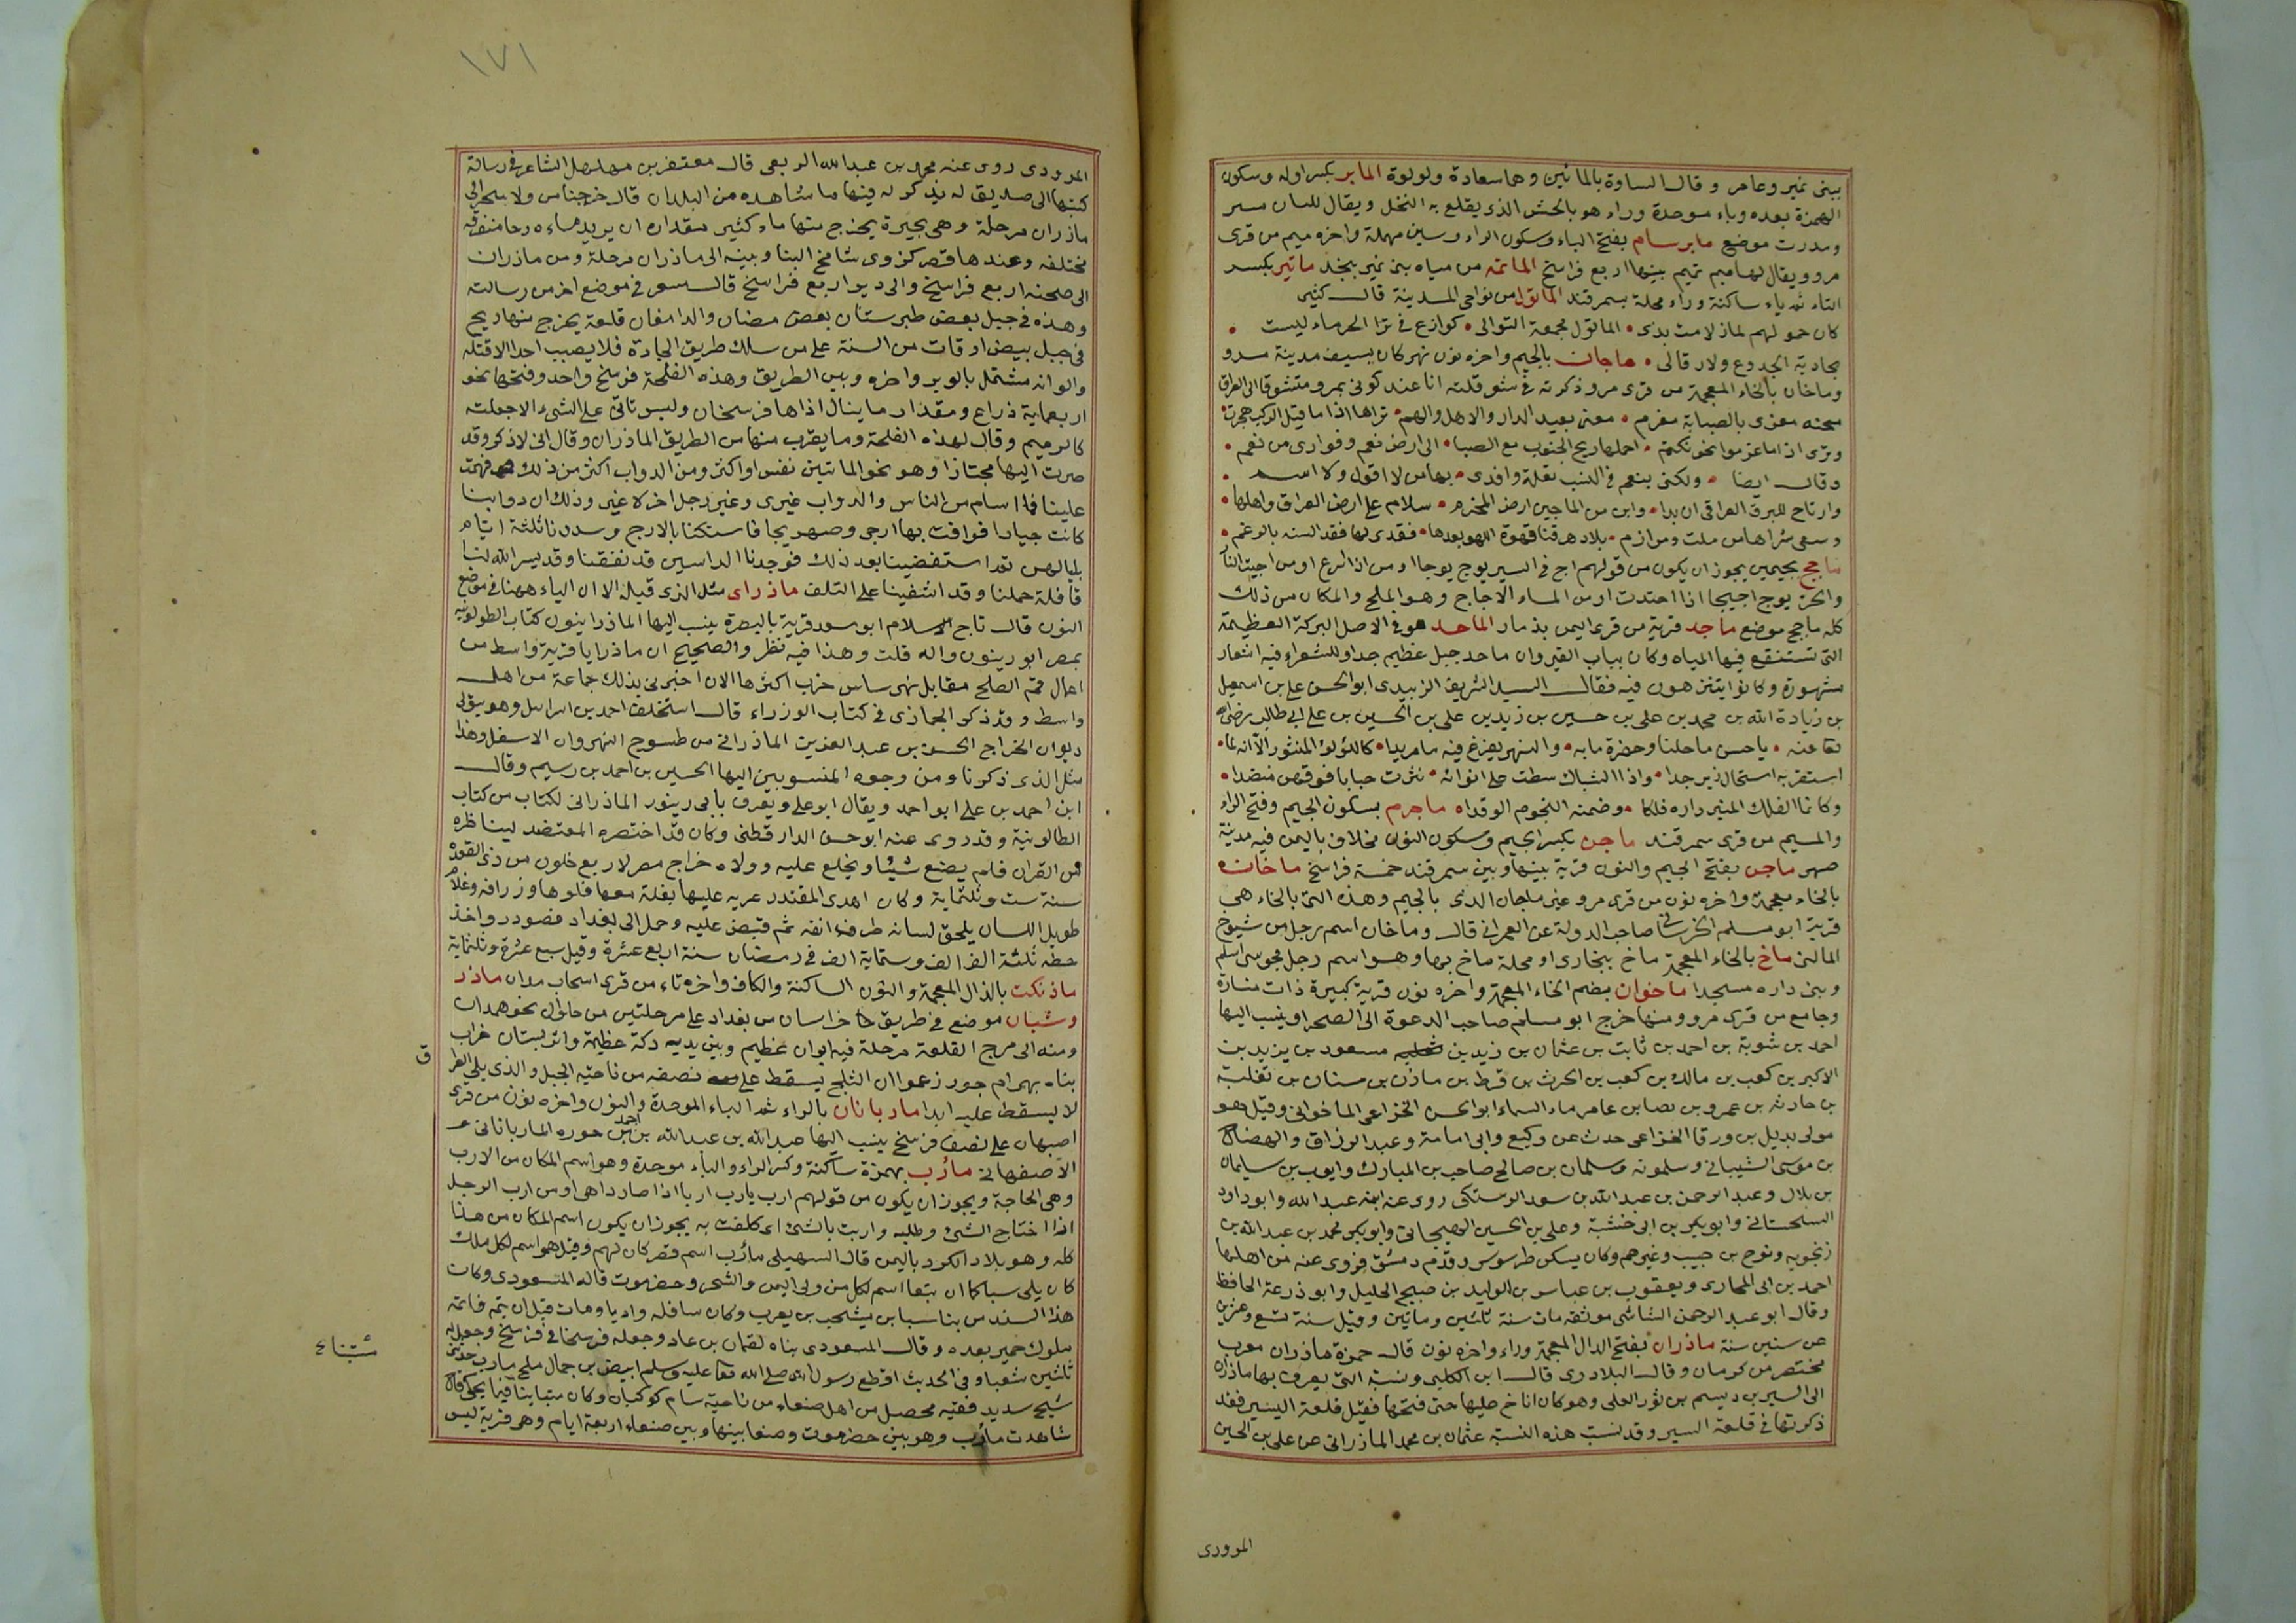 بينى نمير وعامر و قال الساوة بالمائين وهما سعادة ولولوة المابر بكسر اوله وسكون
الهمزة بعده وباء موحدة وراء هو بالحش الذى يقلع به النخل ويقال للسان مبر
ومدرت موضع مابرسام بفتح الباء وسكون الراء وسين مهملة واخره ميم من قرى
مرو ويقال لها ميم تميم بينها اربع فراسخ الماتنه من مياه بنى نمير بنجد ماتير بكسر
التاء ثم ياء ساكنة وراء محلة بسمرقند الماتول من نواحى المدينة قال كثير
كان حمولهم لما ذلامت بذى الماتول مجمعة التوالى كوازع فى ثرا الخرماء ليست
بجادية الجدوع ولا رقالى ماجان بالجيم واخره نون نهر كان يسيف مدينة مرو
وماخان بالخاء المعجمة من قرى مرو ذكرته فى شعر قلته انا عند كونى بمرو متشوقا الى العراق
محنه مغزى بالصبابة مغرم معنى بعيد الدار والاهل والهم تراها اذا ما قيل الركب هجرت
وترى اذا ما عزموا نحو نكهتم احملها ريح الجنوب مع الصبا الى ارض نعم وفوادى من نعم
وقال ايضا ولكنى ينعم فى النسب نقلة وافدى بها من لا اقول ولا اسم
وارتاح للبرق العراقى ان بدا واين من الماجين ارض المخرم سلام على ارض العراق واهلها
وسقى ثراها من ملت ومرازم بلاد هرقنا قهوة اللهو بعدها فقدى لها فقد السنه بالرغم
ماجج بجيمين يجوز ان يكون من قولهم اج فى السير يوج يوجا اومن اذا اسرع اومن اجيت النار
والحر يوج اجيجا اذا احتدت اومن الماء الاجاج وهو الملح والمكان من ذلك
كله ماجج موضع ماجد قرية من قرى اليمن بذمار الماجد هو فى الاصل البركة العظيمة
التى تستنقع فيها المياه وكان بباب القيروان ماجد جبل عظيم جدا وللشعراء فيه اشعار
مشهورة وكانوا يتنزهون فيه فقال السيد الشريف الزبيدى ابو الحسن على بن اسمعيل
بن زيادة الله بن محمد بن على بن حسين بن زيد بن على بن الحسين بن على ابى طالب رضى الله
تعا عنه يا حسن ماجلنا وحضرة مابه والنهر يفرغ فيه ماء مزبدا كاللؤلؤ المنثور الا انه لما
استقر به استحال زبرجدا واذا الشباك سطت على انوانه نثرت حبابا فوقهن منضدا
وكانما الفلك المنير داره فلكا وضمنه النجوم الوقدا ماجرم بسكون الجيم وفتح الراء
والميم من قرى سمرقند ماجن بكسر الجيم وسكون النون مخلاف باليمن فيه مدينة
صهر ماجن بفتح الجيم والنون قرية بينها وبين سمرقند خمسة فراسخ ماخان
بالخاء معجمة واخره نون من قرى مرو غير ماجان الذى بالجيم وهذه التى بالخاء هى
قرية ابو مسلم الخرسانى صاحب الدولة عن العمرانى قال وماخان اسم رجل من شيوخ
المالين ماخ بالخاء المعجمة ماخ ببخارى او محلة ماخ بها وهو اسم رجل مجوسى اسلم
وبنى داره مسجدا ماخوان بضم الخاء المعجمة واخره نون قرية كبيرة ذات منارة
وجامع من قرى مرو ومنها خرج ابو مسلم صاحب الدعوة الى الصحراء وينسب اليها
احمد بن شوبة بن احمد بن ثابت بن عثمان بن زيد بن مسعود بن يزيد بن
الاكبر بن كعب بن مالك بن كعب بن الحرث بن قرط بن مازن بن سنان بن ثعلبة
بن حارثه بن عمرو بن نصا بن عامر ماء السماء ابو الحسن الخزاعى الماخوانى وقيل هو
مولى بديل بن ورقا الخزاعى حدث عن وكيع وابى امامة وعبد الرزاق والفضل
بن موسى الشيبانى وسلمونه وسلمان بن صالح صاحب بن المبارك وايوب بن سليمان
بن بلال وعبد الرحمن بن عبد الله بن سعد الرستكى روى عنه ابنه عبد الله وابو داود
السجستانى وابو بكر بن ابى خثيمة وعلى بن الحسين الهيجانى وابو بكر محمد بن عبد الله بن
زنجويه ونوح بن حبيب وغيرهم وكان يسكن طرسوس وقدم دمشق فروى عنه من اهلها
احمد بن ابى الحوارى ويعقوب بن عباس بن الوليد بن صبيح الخليل وابو زرعة الحافظ
وقال ابو عبد الرحمن النسائى هو ثقه مات سنة ثلثين وماتين وقيل سنة تسع وعشرين
عن ستين سنة ماذران بفتح الدال المعجمة وراء واخره نون قال حمزة ماذران معرب
مختصر من كرمان وقال البلاذرى قال ابن الكلبى ونسبة التى يعرف بها ماذران
الى السير بن ديسم بن ثور العجلى وهو كان اناخ عليها حتى فتحها فقيل قلعة اليسير فقد
ذكرتها فى قلعة السير وقد نسب هذه النسبة عثمان بن محمد الماذرانى عن على بن الحسين
المرورى
١٧١
المرودى روى عنه محمد بن عبد الله الربعى قال معتفر بن مهلهل الشاعر فى رسالة
كتبها الى صديق له يذكر له فيها ما شاهده من البلدان قال خرجنا من ولاسجر الى
ماذران مرحلة وهى بحيرة يخرج منها ماء كثير مقداره ان يريد مياءه رحا متفرقه
مختلفه وعندها قصر كزوى شامخ البنا وبينه الى ماذران مرحلة ومن ماذران
الى صحنه اربع فراسخ والى دير اربع فراسخ قال مسعر فى موضع اخر من رسالته
وهذه فى جبل بعض طبرستان بعض سمنان والدامغان قلعة يخرج منها ريح
فى جبل بيض اوقات من السنة على من سلك طريق الجادة فلا يصيب احدا الا قتله
والوانه مشتمل بالوبر واخره وبين الطريق وهذه الفلجة فرسخ واحد وفتحتها نحو
اربعماية ذراع ومقدار ما ينال اذاها فرسخان وليس تاتى على الشىء الا جعلته
كالرميم وقال لهذه الفلجة وما يقرب منها من الطريق الماذران وقال انى لاذكر وقد
صرت اليها مجتازا وهو نحو الماتين نفس او اكثر ومن الدواب اكثر من ذلك فهبت
علينا فما سلم من الناس والدواب غيرى وغير رجل اخر لا غير وذلك ان دوابنا
كانت جيادا فوافت بها ارجى وصهريجا فاستكنا بالارج وسددنا ثلثة ايام
بليالهن ثم استفضينا بعد ذلك فوجدنا الداسين قد نفقنا وقد يسر الله لنا
قافلة حملنا وقد اشفينا على التلف ماذراى مثل الذى قبله الا ان الياء ههنا فى موضع
النون قال تاج الاسلام ابو سعد قرية بالبصرة ينسب اليها الماذراينون كتاب الطولونيه
بمصر ابو رينون واله قلت وهذا فيه نظر والصحيح ان ماذرايا قرية واسط من
اعمال فم الصلح مقابل نهر سابس خرب اكثرها الان اخبرنى بذلك جماعة من اهل
واسط وقد ذكر الجهازى فى كتاب الوزراء قال استخلف احمد بن اسرائيل وهو يتولى
ديوان الخراج الحسن بن عبد العزيز الماذرانى من طسوج النهروان الاسفل وهذا
مثل الذى ذكرنا ومن وجوه المنسوبين اليها الحسين بن احمد بن رسيم وقال
ابن احمد بن على ابو احمد ويقال ابو على ويعرف بابى رينور الماذرانى لكتاب من كتاب
الطالونية وقد روى عنه ابو حسن الدار قطنى وكان قد اختصره المعتضد ليناظره
من القران فلم يصنع شيئا ويخلع عليه وولاه خراج مصر لاربع خلون من ذى القعدة
سنة ست وثلثماية وكان اهدى المقتدر عريه عليها بغلة معها فلوها وزرافه وغلام
طويل اللسان يلحق لسانه طرف انفه ثم قبض عليه وحمل الى بغداد فصودر واخذ
خطه بثلثة الف الف وستماية الف فى رمضان سنة اربع عشرة وقيل سبع عشرة وثلثماية
ماذنكت بالذال المعجمة والنون الساكنة والكاف واخره تاء من قرى اسحاب مدان ماذر
وشبان موضع فى طريق خراسان من بغداد على مرحلتين من حلوان نحو همدان
ومنه الى مرج القلعة مرحلة فيه ايوان عظيم وبين يديه دكة عظيمة واثر بستان خراب
بناه بهرام جور زعموا ان الثلج يسقط على نصفه من ناحية الجبل والذى يلى العراق
لا يسقط عليه ابدا ماربانان بالراء ثم الباء الموحدة والنون واخره نون من قرى
اصبهان على نصف فرسخ ينسب اليها عبد الله بن عبد الله بن احمد حوره الماربانانى
الاصفهانى مأرب بهمزة ساكنة وكسر الراء والباء موحدة وهو اسم المكان من الارب
وهى الحاجة ويجوز ان يكون من قولهم ارب يارب اربا اذا صار داهى او من ارب الرجل
اذا احتاج الشئ وطلبه واربت بالشئ اى كلفت به يجوز ان يكون اسم المكان من هذا
كله وهو بلاد الكرد باليمن قال السهيلى مأرب اسم قصر كان لهم وقيل هو اسم لكل ملك
كان يلى سبا كما ان تبعا اسم لكل من ولى اليمن والشحر وحضرموت قاله المسعودى وكان
هذا السد من بنا سبا بن يشجب بن يعرب وكان سافله واديا ومات قبل ان يتمه فاتمه
ملوك حمير بعده وقال المسعودى بناه لقمان بن عاد وجعله فرسخا فى فرسخ وجعل له
ثلثين شعبا وفى الحديث اقطع رسول الله صلى الله تعا عليه وسلم ابيض بن جمال ملح مأرب حدثنى
شيخ سديد فقيه محصل من اهل صنعاء من ناحية سام كوكبان وكان متباينا فيما يحكى قال
شاهدت مأرب وهو بين حضرموت وصنعا بينها وبين صنعاء اربعة ايام وهى قرية ليس
ق